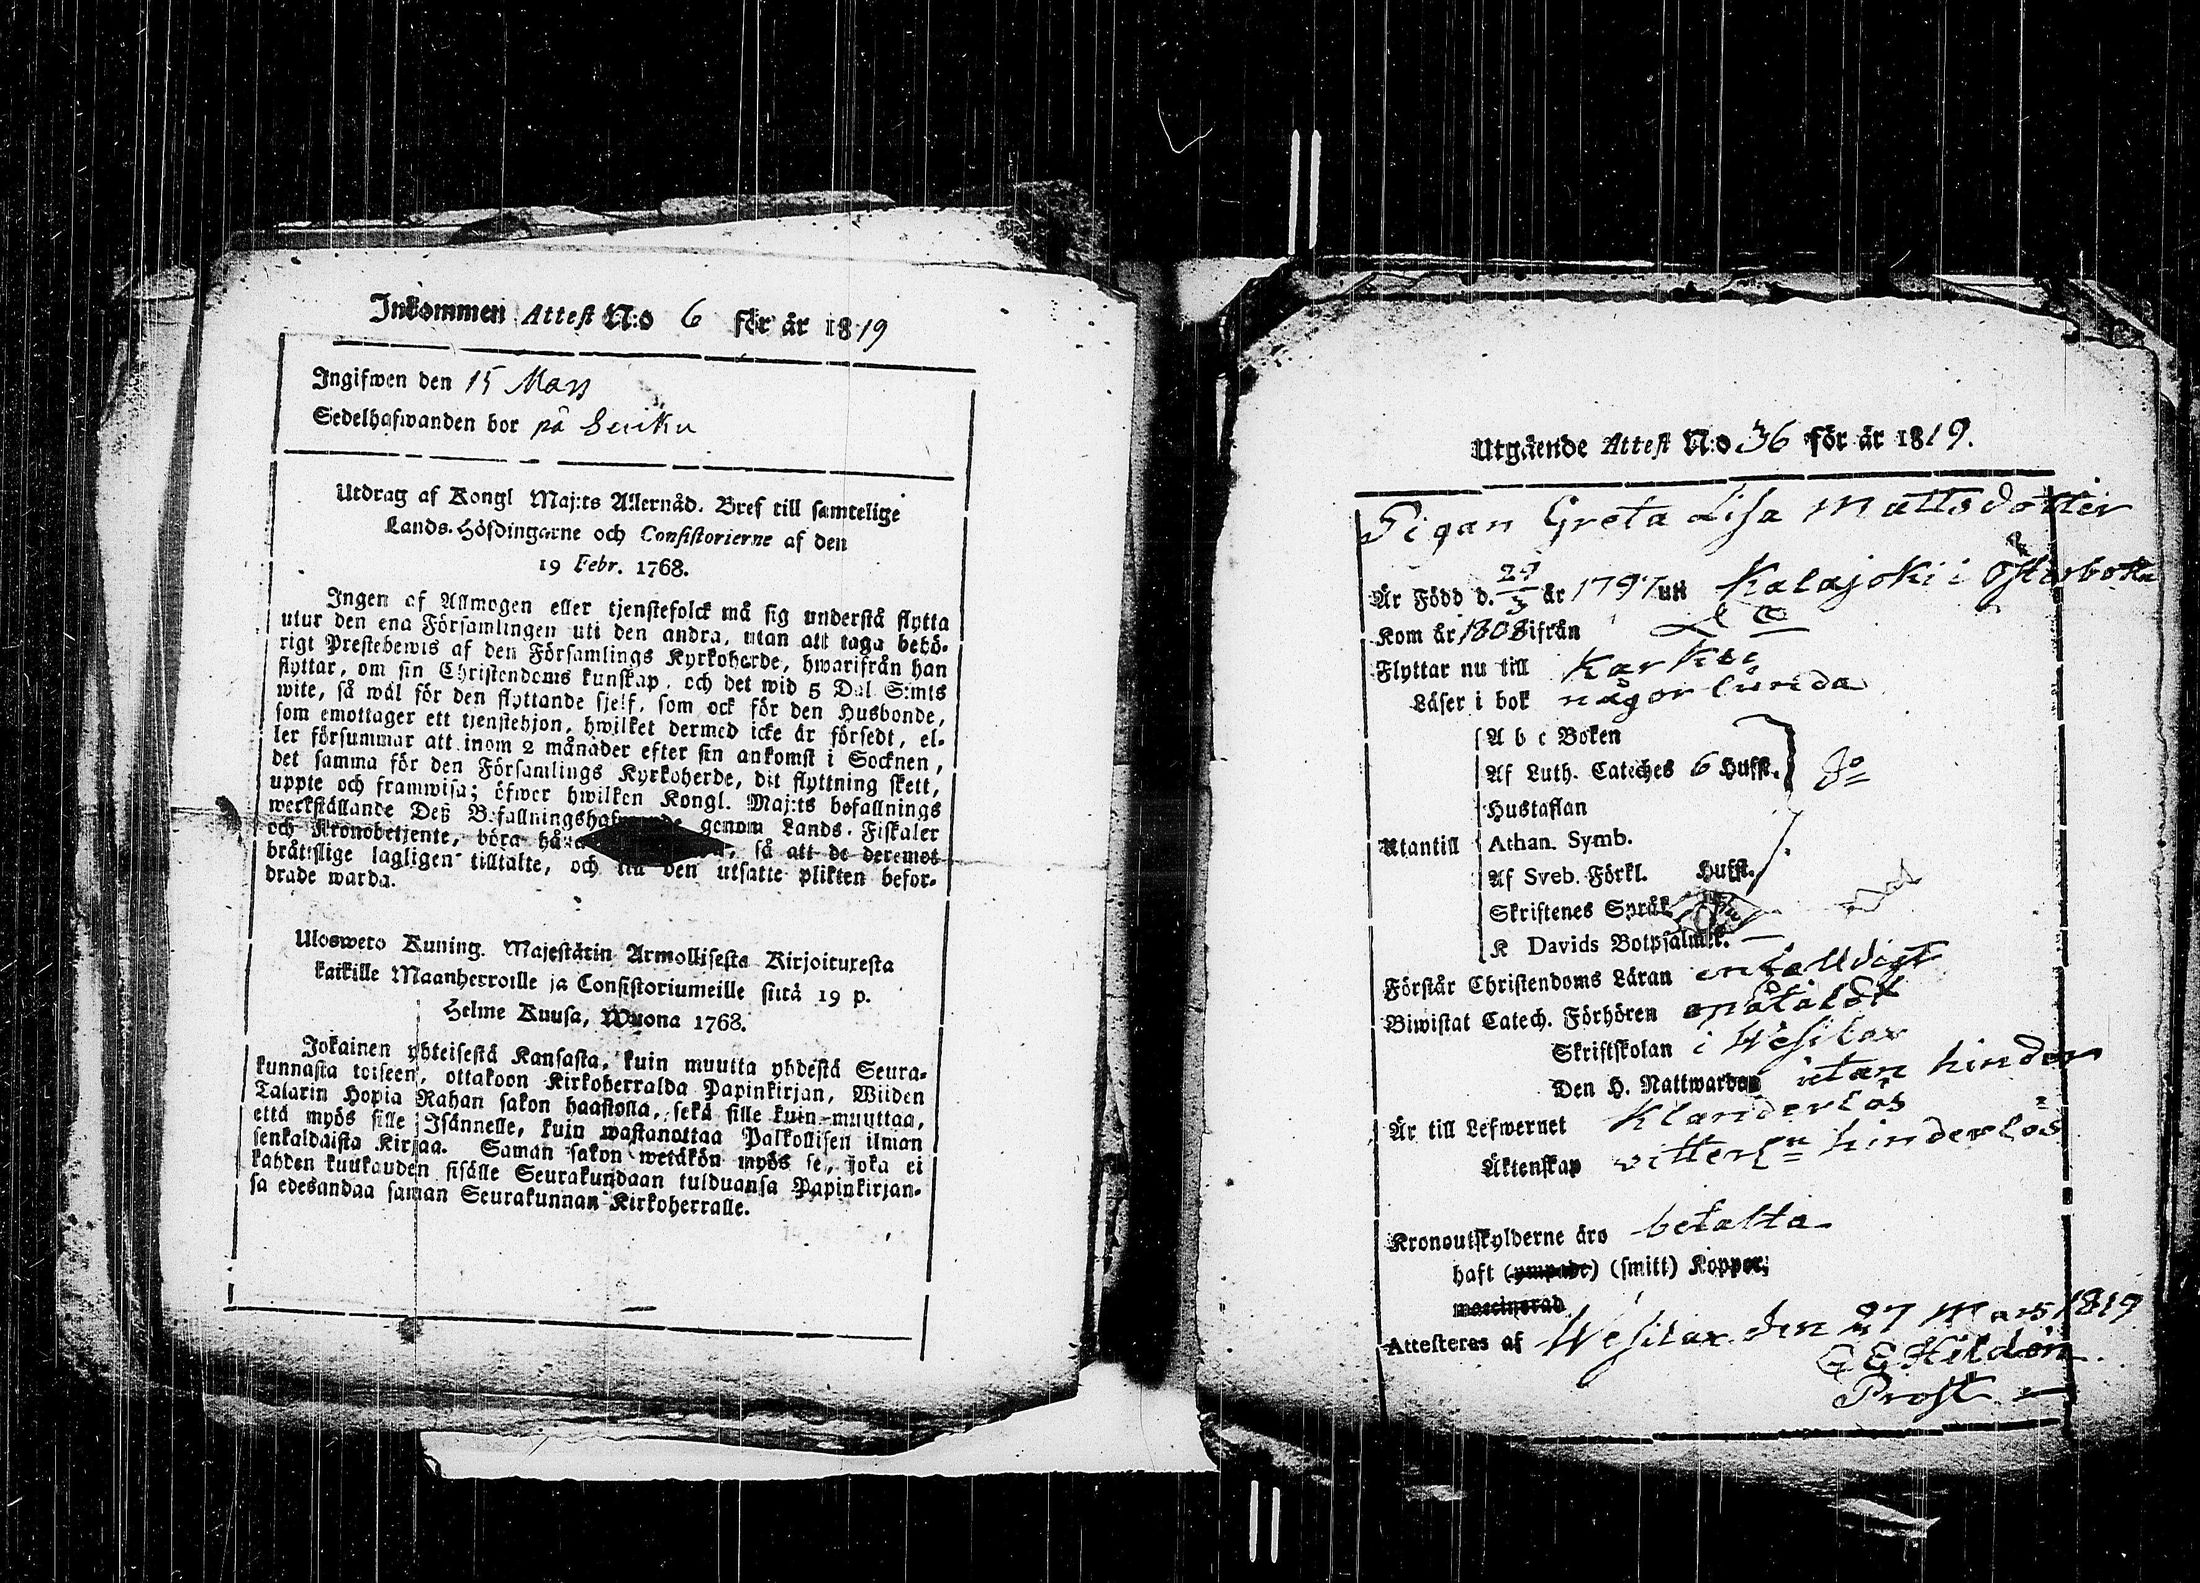 Inkommen Attest N:o 6 för år 1819
Ingifwen den 15 Mars
Sedelhafwanden bor på
Utdrag af Kongl Maj:ts Allernåd. Bref till samtelige
Lands-Höfdingarne och Consistorierne af den
19 Febr. 1768.
Ingen af Allmogen eller tjenstefolck må sig understå flytta
utur den ena Församlingen uti den andra, utan att taga behö-
rigt Prestebewis af den Församlings Kyrkoherde, hwarifrån han
flyttar, om sin Christendoms kunskap, och det wid 5 Dal. S:mts
wite, så wäl för den flyttande sjelf, som ock för den Husbonde,
som emottager ett tjenstehjon, hwilket dermed icke är försedt, el-
ler försummar att inom 2 månader efter sin ankomst i Socknen,
det samma för den Församlings Kyrkoherde, dit flyttning skett,
uppte och framwisa; öfwer hwilken Kongl. Maj:ts befallnings
werkställande Deß Befallningshafwande genom Lands-Fiskaler
och Kronobetjente, böra så att de deremot
bråttslige lagligen tilltalte, och till den utsatte plikten befor-
drade warda.
Ulosweto Kuning. Majestätin Armollisesta Kirjoituxesta
kaikille Maanherroille ja Consistoriumeille siitä 19 p.
Helme Kuusa, Wuona 1768.
Jokainen yhteisestä Kansasta, kuin muutta yhdestä Seura-
kunnasta toiseen, ottakoon Kirkoherralda Papinkirjan, Wiiden
Talarin Hopia Rahan sakon haastolla, sekä sille kuin muuttaa,
että myös sille Isännelle, kuin wastanottaa Palkollisen ilman
senkaldaista Kirjaa. Saman sakon wetäkön myös se, joka ei
kahden kuukauden sisälle Seurakundaan tulduansa Papinkirjan-
sa edesandaa saman Seurakunnan Kirkoherralle.
Utgående Attest N:o 36 för år 1819.
Pigan Greta Lisa Mattsdotter
Är Född d. 29/3 år 1797 uti Kalajoki i Österbotn
Kom år 1808 ifrån
Flyttar nu till Karkku
Läser i bok någorlunda
A b c Boken
Af Luth. Cateches 6 Hufst.
Hustaflan
Utantill Athan. Symb.
Af Sveb. Förkl. Hufst.
Skriftenes Språk
K Davids Botpsalmer.
Förstår Christendoms Läran enfalldigt
Biwistat Catech. Förhören opåtaldt
Skriftskolan i Wesilax
Den H. Nattwarden utan hinder
Är till Lefwernet Klanderlös
Äktenskap vitterl:n hinderlös
Kronoutskylderne äro betalta
haft (ympade) (smitt) Koppor;
vaccinerad
Attesteras af Wesilax den 27 Mars 1819
G E Hildén
Prost